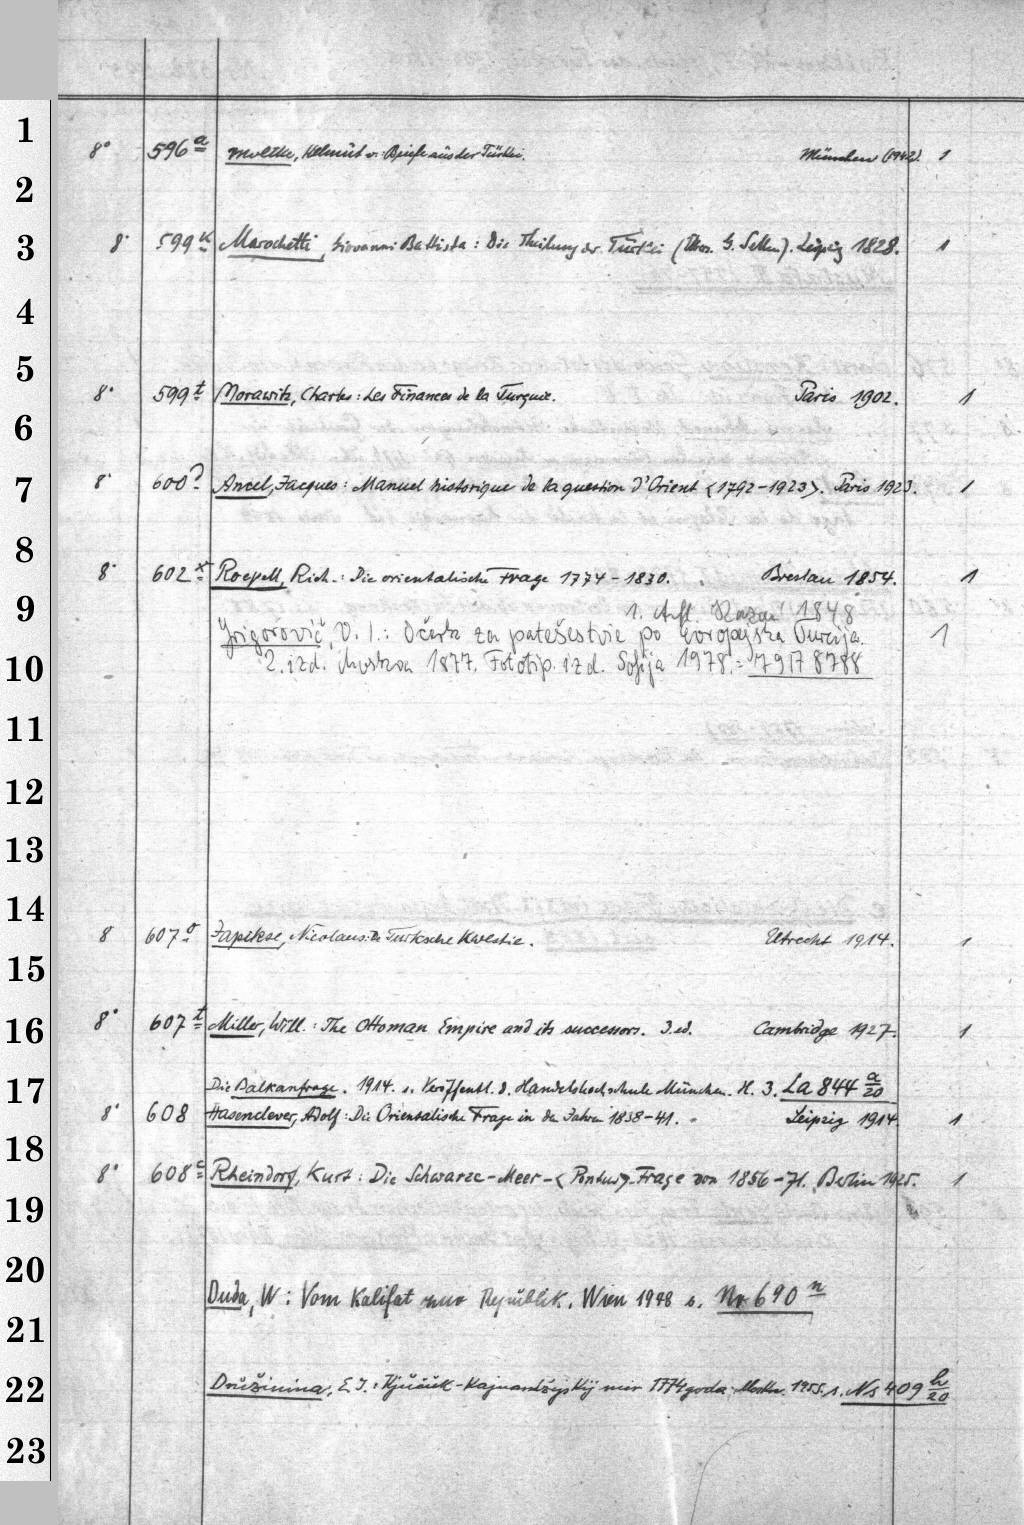 1
8° 596 a Moltke, Helmut v.: Briefe aus der Türkei. München (1942). 1
2
3 8° 599 k Marochetti, Giovanni Battista: Die Theilung der Türkei (Übers. G. Sellen). Leipzig 1828. 1
4
5
8° 599 t Morawitz, Charles: Les Finances de la Turquie. Paris 1902. 1
6
7 8° 600 Ancel, Jacques: Manuel historique de la question d'Orient <1792-1923>. Paris 1923. 1
8
8° 602 x Roepell, Rich.: Die orientalische Frage 1774-1830. Breslau 1854. 1
9 1. Aufl. Kazan' 1848
Grigorovič, V. I.: Očerk za patešestvie po Evropejska Turcija. 1
10 2. izd. Moskva 1877. Fototip. izd. Sofija 1978. = 79 17 8788
11
12
13
14
8° 607 o Japikse, Nicolaus: De Turksche Kwestie. Utrecht 1914. 1
15
16 8° 607 t Miller, Will.: The Ottoman Empire and its successors. 3. ed. Cambridge 1927. 1
17 Die Balkanfrage. 1914. s. Veröffentl. d. Handelshochschule München. H. 3. La 844 a/20
8° 608 Hasenclever, Adolf: Die Orientalische Frage in den Jahren 1838-41. Leipzig 1914. 1
18
8° 608 c Rheindorf, Kurt: Die Schwarze-Meer-<Pontus>-Frage von 1856-71. Berlin 1925. 1
19
20
Duda, W: Vom Kalifat zur Republik. Wien 1948 s. Nr 690 n
21
22 Družinina, E. I.: Kjučuk-Kajnardžijskij mir 1774 goda. Moskv. 1955. s. Ns 409 h/20
23